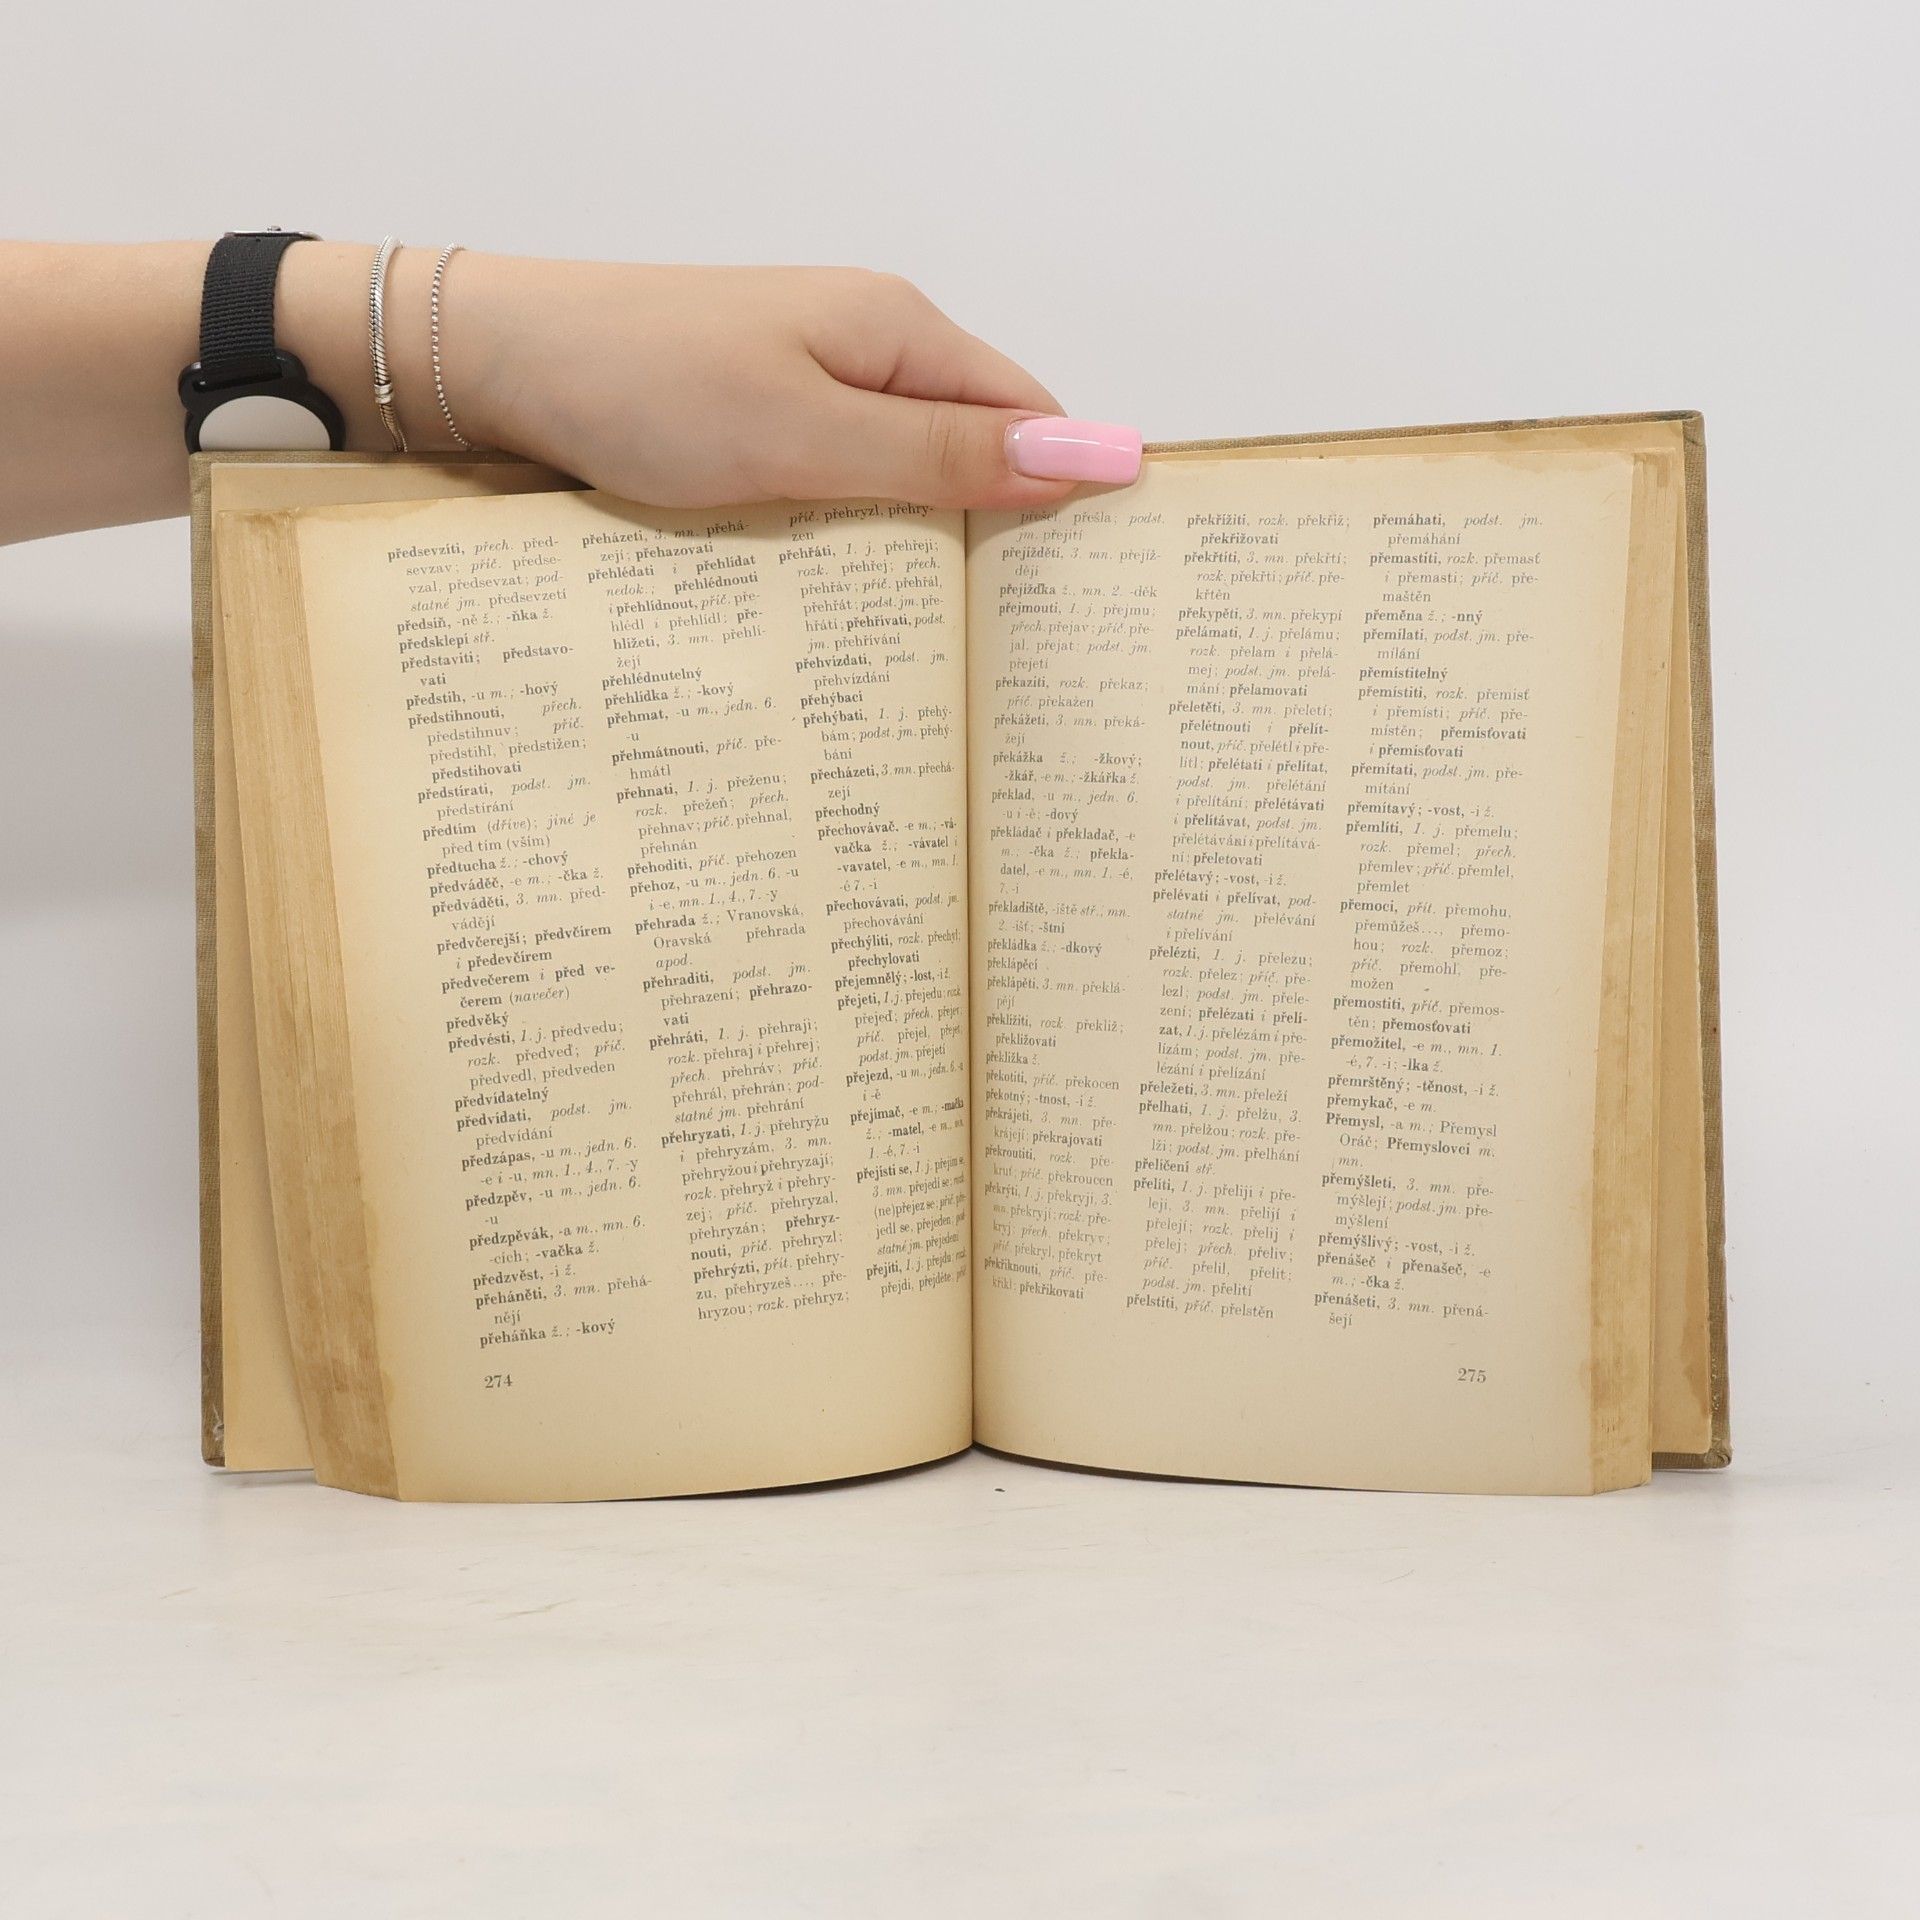 předsevzíti, přech. před-
sevzav; příč. předse-
vzal, předsevzat; pod-
statné jm. předsevzetí
předsíň, -ně ž.; -ňka ž.
předsklepí stř.
představiti; představo-
vati
předstih, -u m.; -hový
předstihnouti, přech.
předstihnuv; příč.
předstihl, předstižen;
předstihovati
předstírati, podst. jm.
předstírání
předtím (dříve); jiné je
před tím (vším)
předtucha ž.; -chový
předváděč, -e m.; -čka ž.
předváděti, 3. mn. před-
vádějí
předvčerejší; předvčírem
i předevčírem
předvečerem i před ve-
čerem (navečer)
předvěký
předvésti, 1. j. předvedu;
rozk. předveď; příč.
předvedl, předveden
předvídatelný
předvídati, podst. jm.
předvídání
předzápas, -u m., jedn. 6.
-e i -u, mn. 1., 4., 7. -y
předzpěv, -u m., jedn. 6.
-u
předzpěvák, -a m., mn. 6.
-cích; -vačka ž.
předzvěst, -i ž.
přeháněti, 3. mn. přehá-
nějí
přeháňka ž.; -kový
274
přeházeti, 3. mn. přehá-
zejí; přehazovati
přehlédati i přehlídat
nedok.; přehlédnouti
i přehlídnout, příč. pře-
hlédl i přehlídl; pře-
hlížeti, 3. mn. přehlí-
žejí
přehlédnutelný
přehlídka ž.; -kový
přehmat, -u m., jedn. 6.
-u
přehmátnouti, příč. pře-
hmátl
přehnati, 1. j. přeženu;
rozk. přežeň; přech.
přehnav; příč. přehnal,
přehnán
přehoditi, příč. přehozen
přehoz, -u m., jedn. 6. -u
i -e, mn. 1., 4., 7. -y
přehrada ž.; Vranovská,
Oravská přehrada
apod.
přehraditi, podst. jm.
přehrazení; přehrazo-
vati
přehráti, 1. j. přehraji;
rozk. přehraj i přehrej;
přech. přehráv; příč.
přehrál, přehrán; pod-
statné jm. přehrání
přehryzati, 1. j. přehryžu
i přehryzám, 3. mn.
přehryžou i přehryzají;
rozk. přehryž i přehry-
zej; příč. přehryzal,
přehryzán; přehryz-
nouti, příč. přehryzl;
přehrýzti, přít. přehry-
zu, přehryzeš..., pře-
hryzou; rozk. přehryz;
příč. přehryzl, přehry-
zen
přehřáti, 1. j. přehřeji;
rozk. přehřej; přech.
přehřáv; příč. přehřál,
přehřát; podst. jm. pře-
hřátí; přehřívati, podst.
jm. přehřívání
přehvízdati, podst. jm.
přehvízdání
přehýbací
přehýbati, 1. j. přehý-
bám; podst. jm. přehý-
bání
přecházeti, 3. mn. přechá-
zejí
přechodný
přechovávač, -e m.; -vá-
vačka ž.; -vávatel i
-vavatel, -e m., mn. 1.
-é 7. -i
přechovávati, podst. jm.
přechovávání
přechýliti, rozk. přechyl;
přechylovati
přejemnělý; -lost, -i ž.
přejeti, 1. j. přejedu; rozk.
přejeď; přech. přejev;
příč. přejel, přejet;
podst. jm. přejetí
přejezd, -u m., jedn. 6. -u
i -ě
přejímač, -e m.; -mačka
ž.; -matel, -e m., mn.
1. -é, 7. -i
přejísti se, 1. j. přejím se,
3. mn. přejedí se; rozk.
(ne)přejez se; příč. pře-
jedl se, přejeden; pod-
statné jm. přejedení
přejíti, 1. j. přejdu; rozk.
přejdi, přejděte; příč.
přešel, přešla; podst.
jm. přejití
přejížděti, 3. mn. přejíž-
dějí
přejížďka ž., mn. 2. -děk
přejmouti, 1. j. přejmu;
přech. přejav; příč. pře-
jal, přejat; podst. jm.
přejetí
překaziti, rozk. překaz;
příč. překažen
překážeti, 3. mn. překá-
žejí
překážka ž.; -žkový;
-žkář, -e m.; -žkářka ž.
překlad, -u m., jedn. 6.
-u i -ě; -dový
překládač i překladač, -e
m.; -čka ž.; překla-
datel, -e m., mn. 1. -é,
7. -i
překladiště, -iště stř., mn.
2. -išť; -štní
překládka ž.; -dkový
překlápěcí
překlápěti, 3. mn. překlá-
pějí
překližiti, rozk překliž;
překližovati
překližka ž.
překotiti, příč. překocen
překotný; -tnost, -i ž.
překrájeti, 3. mn. pře-
krájejí; překrajovati
překroutiti, rozk. pře-
kruť; příč. překroucen
překrýti, 1. j. překryji, 3.
mn. překryjí; rozk. pře-
kryj; přech. překryv;
příč. překryl, překryt
překřiknouti, příč. pře-
křikl; překřikovati
překřížiti, rozk. překřiž;
překřižovati
překřtíti, 3. mn. překřtí;
rozk. překřti; příč. pře-
křtěn
překypěti, 3. mn. překypí
přelámati, 1. j. přelámu;
rozk. přelam i přelá-
mej; podst. jm. přelá-
mání; přelamovati
přeletěti, 3. mn. přeletí;
přelétnouti i přelít-
nout, příč. přelétl i pře-
lítl; přelétati i přelítat,
podst. jm. přelétání
i přelítání; přelétávati
i přelítávat, podst. jm.
přelétávání i přelítává-
ní; přeletovati
přelétavý; -vost, -i ž.
přelévati i přelívat, pod-
statné jm. přelévání
i přelívání
přelézti, 1. j. přelezu;
rozk. přelez; příč. pře-
lezl; podst. jm. přele-
zení; přelézati i přelí-
zat, 1. j. přelézám i pře-
lízám; podst. jm. pře-
lézání i přelízání
přeležeti, 3. mn. přeleží
přelhati, 1. j. přelžu, 3.
mn. přelžou; rozk. pře-
lži; podst. jm. přelhání
přelíčení stř.
přelíti, 1. j. přeliji i pře-
leji, 3. mn. přelijí i
přelejí; rozk. přelij i
přelej; přech. přeliv;
příč. přelil, přelit;
podst. jm. přelití
přelstíti, příč. přelstěn
přemáhati, podst. jm.
přemáhání
přemastiti, rozk. přemasť
i přemasti; příč. pře-
maštěn
přeměna ž.; -nný
přemílati, podst. jm. pře-
mílání
přemístitelný
přemístiti, rozk. přemísť
i přemísti; příč. pře-
místěn; přemísťovati
i přemisťovati
přemítati, podst. jm. pře-
mítání
přemítavý; -vost, -i ž.
přemlíti, 1. j. přemelu;
rozk. přemel; přech.
přemlev; příč. přemlel,
přemlet
přemoci, přít. přemohu,
přemůžeš..., přemo-
hou; rozk. přemoz;
příč. přemohl, pře-
možen
přemostiti, příč. přemos-
těn; přemosťovati
přemožitel, -e m., mn. 1.
-é, 7. -i; -lka ž.
přemrštěný; -těnost, -i ž.
přemykač, -e m.
Přemysl, -a m.; Přemysl
Oráč; Přemyslovci m.
mn.
přemýšleti, 3. mn. pře-
mýšlejí; podst. jm. pře-
mýšlení
přemýšlivý; -vost, -i ž.
přenášeč i přenašeč, -e
m.; -čka ž.
přenášeti, 3. mn. přená-
šejí
275